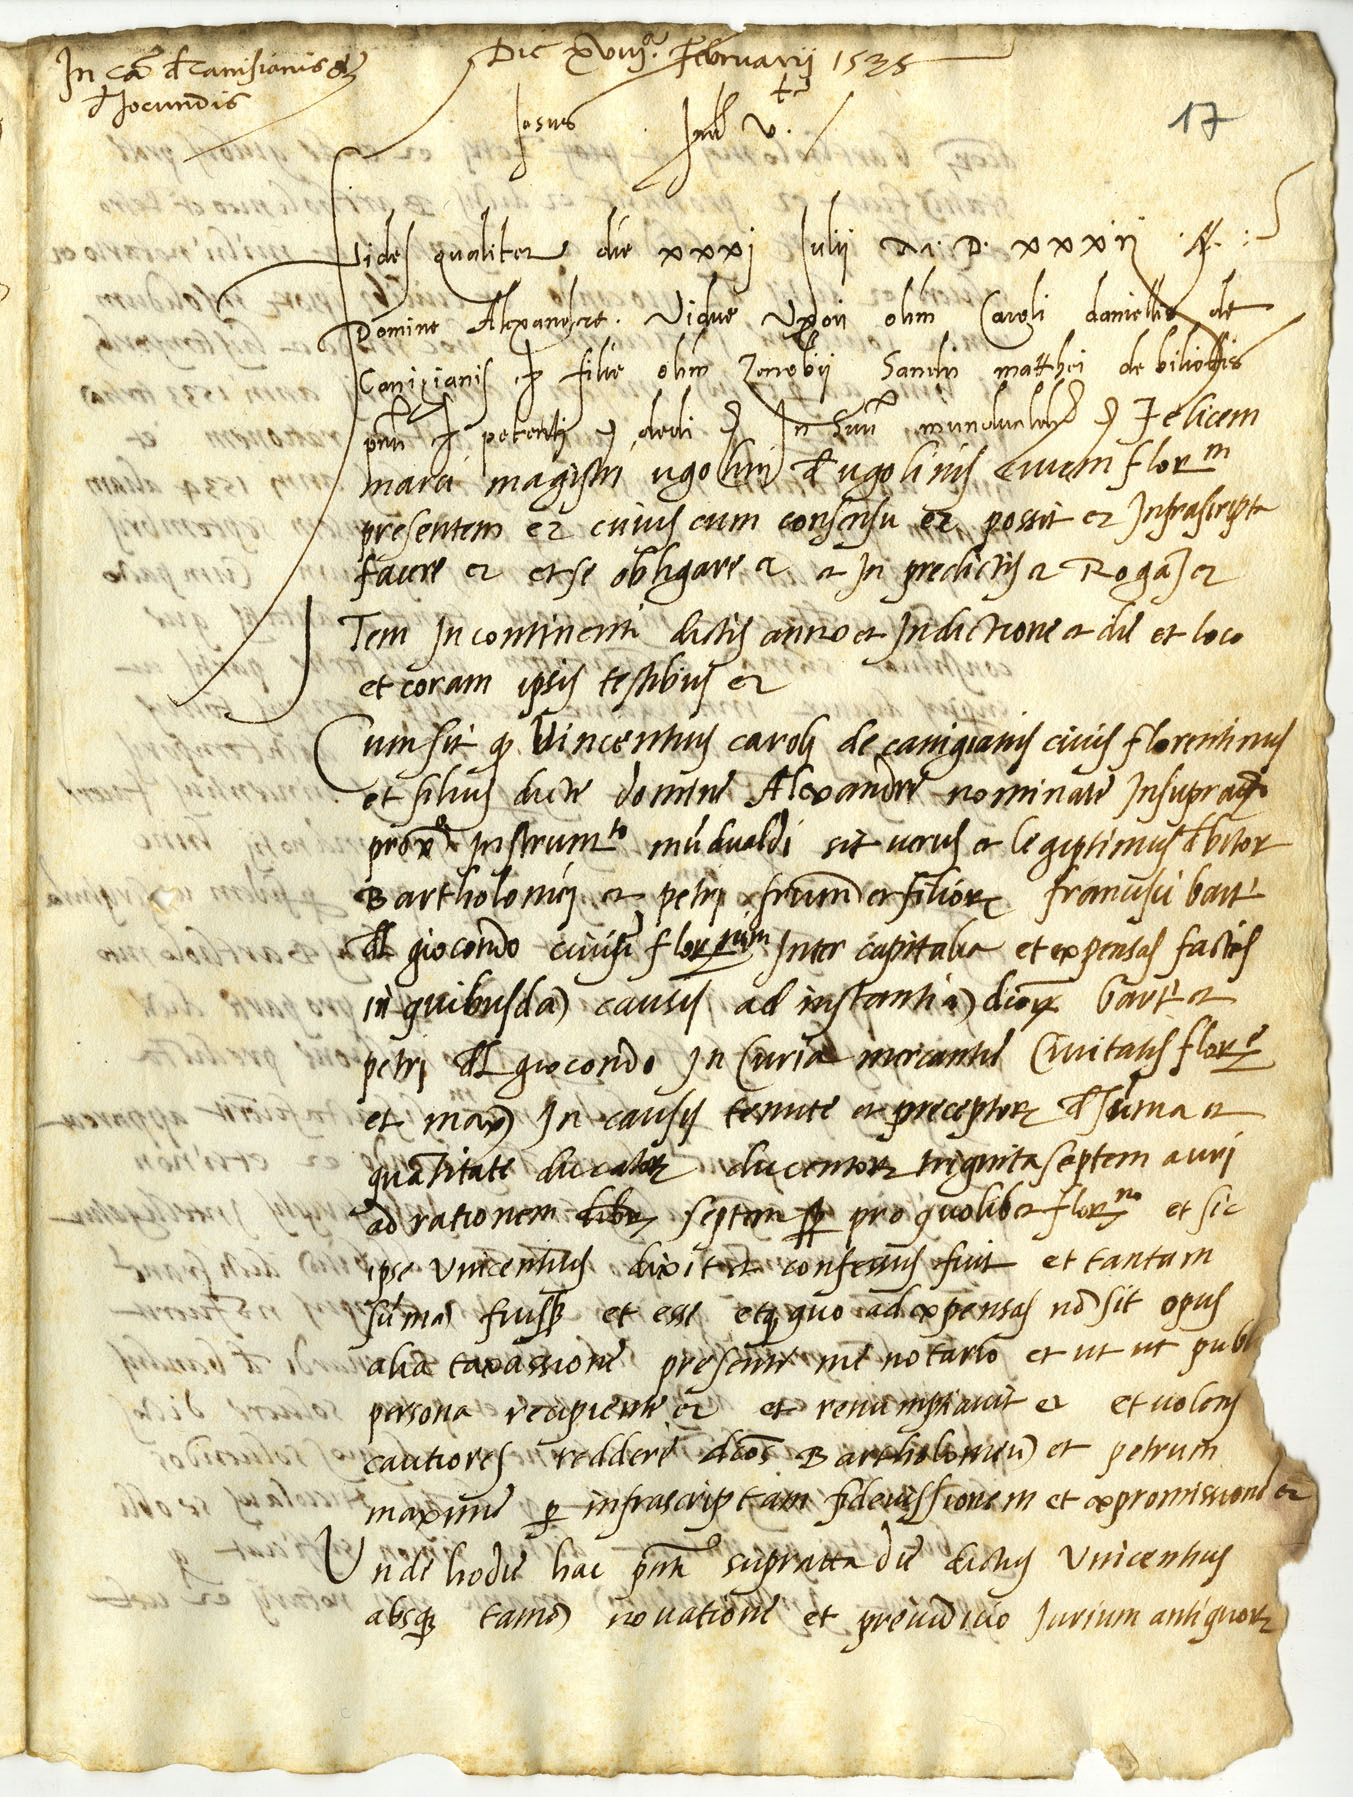 In ca de Canisianis et
de Jocundis
Die xviiij.a Februarij 1535
Iesus
17
Fides qualiter die xxxj Julii M. D. xxxiij
Domine Alexandre. Vidue Uxori olim Caroli danielli de
Canigianis et filie olim Zenobii Sandri matthei de biliottis
pnti et petenti dedi In suu mundualdu Felicem
marci magistri ugolini de ugolinis civem florm
presentem et cuius cum consensu et possit et Infrascripta
facere et et se obligare et et In predictis et Rogans et
ITem In continenti dictis anno et Indictione et die et loco
et coram ipsis testibus et
Cum sit q Vincentius caroli de canigianis civis florentinus
et filius dicte domine Alexandre nominate In supra
proxo Instrumto mundualdi sit verus et legiptimus debitor
Bartholomei et petri frum et filior francisci bart
del giocondo civium flornor Inter capitalia et expensas factas
in quibusda causis ad instantia dicor bart et
petri del giocondo In Curia mercantie Civitatis flore
et max In causis tenute et preceptor de suma et
quatitate ducator ducentor triginta septem auri
ad rationem libr septem pro quolibet florno et sic
ipse Vincentius dixit et confessus fuit et tantam
suma fuisse et esse et q quo ad expensas no sit opus
alia taxassione presente me notario et ut ut publ
persona recipiente et et renumptiavit et et volens
cautiores reddere dcos Bartholomeu et petrum
maxime p infrascriptam fideiussionem et expromissione et
Unde hodie hac pnti supratta die dictus Vincentius
absq tame novatione et preiudicio Jurium antiquor